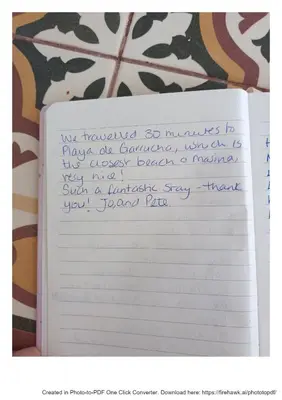 We travelled 30 minutes to
Playa de Garrucha, which is
the closest beach & Marina
very nice!
Such a fantastic stay - thank
you! Jo and Pete
Created in Photo-to-PDF One Click Converter. Download here: https://firehawk.ai/phototopdf/